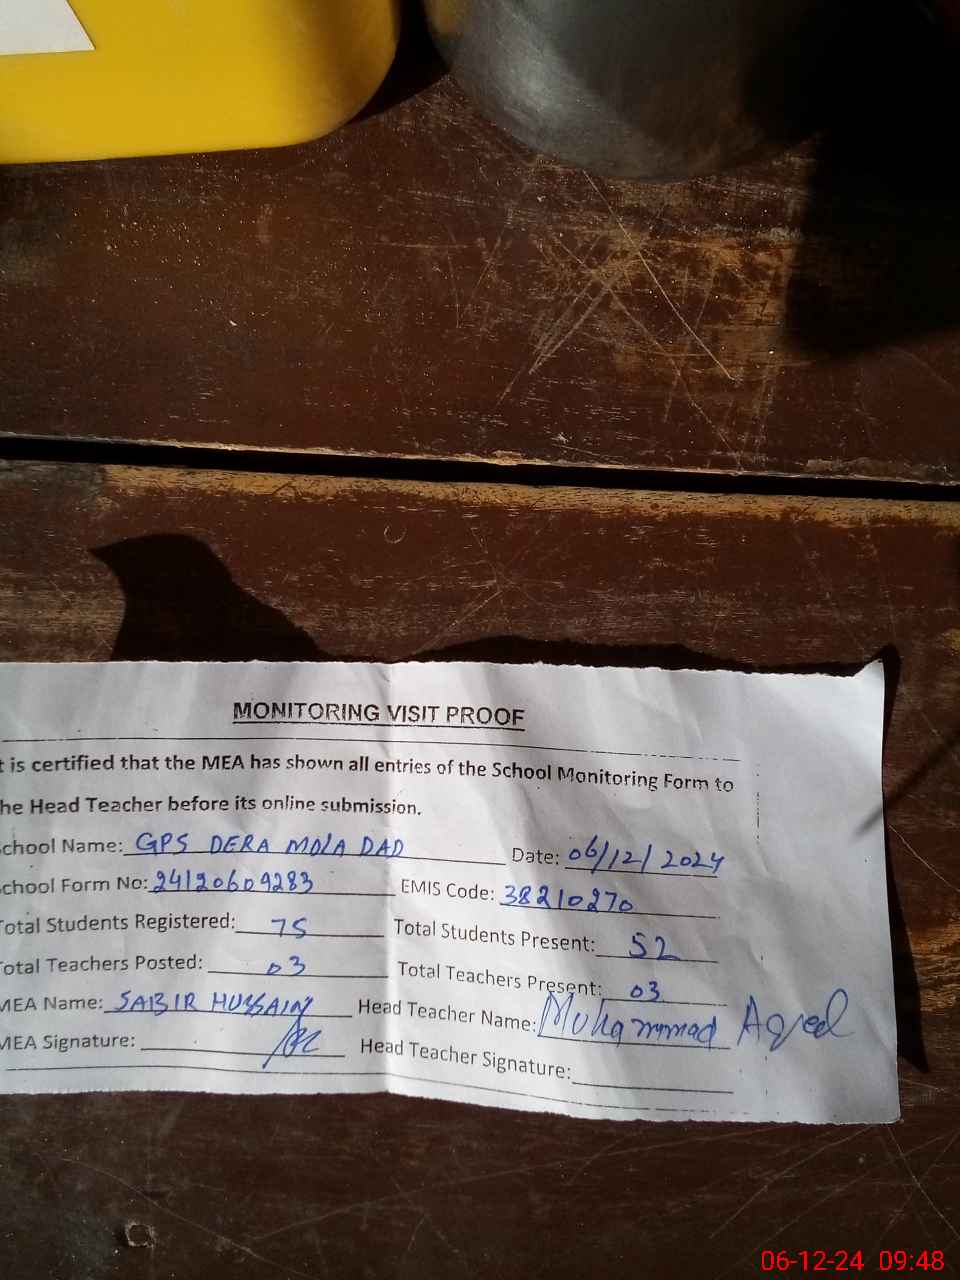 MONITORING VISIT PROOF
t is certified that the MEA has shown all entries of the School Monitoring Form to
he Head Teacher before its online submission.
chool Name: GPS DERA MOLA DAD Date: 06/12/2024
chool Form No: 24120609283 EMIS Code: 38210270
otal Students Registered: 75 Total Students Present: 52
otal Teachers Posted: 03 Total Teachers Present: 03
MEA Name: SABIR HUSSAIN Head Teacher Name: Muhammad Aqeel
MEA Signature: Head Teacher Signature:
06-12-24 09:48